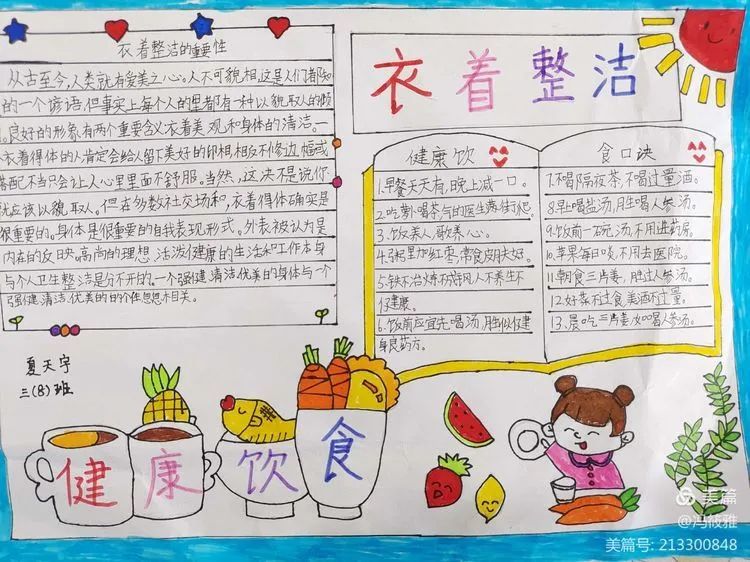 衣着整洁的重要性
从古至今,人类就有爱美之心。人不可貌相,这是人们都知
的一个谚语,但事实上每个人的里都有一种以貌取人的倾
。良好的形象有两个重要含义:衣着美观和身体的清洁。一
衣着得体的人肯定会给人留下美好的印相,相反不修边幅或
搭配不当只会让人心里里面不舒服。当然,这决不是说你
就应该以貌取人。但在多数社交场和,衣着得体确实是
很重要的。身体是很重要的自我表现形式。外表被认为是
内在的反映,高尚的理想、活泼健康的生活和工作本身
与个人卫生整洁是分不开的。一个强健清洁优美的身体与一个
强健清洁优美的
夏天宇
三(8)班
衣着整洁
健康饮
食口诀
1.早餐天天有,晚上减一口。
2.吃萝卜喝茶,气的医生满街爬。
3.饮养人,歌养心。
4.粥里加红枣,常食皮肤好。
5.铁不冶炼不
健康。
6.饭前应宜先喝汤,胜似
身良药方。
7.不喝隔夜茶,不喝过量酒。
8.早喝盐汤,胜喝人参汤。
9.饭前一碗汤,不用进药房。
10.苹果每日啖,不用去医院。
11.朝食三片姜,胜过人参汤。
12.好菜不过食,美酒不过量。
13.晨吃三片姜,如喝人参汤。
健康饮食
美篇
@冯筱雅
美篇号: 213300848